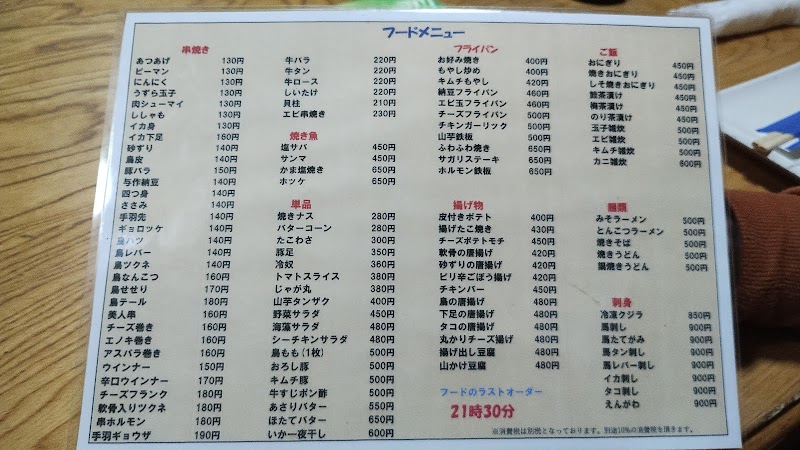 フードメニュー
串焼き
あつあげ 130円
ピーマン 130円
にんにく 130円
うずら玉子 130円
肉シューマイ 130円
ししゃも 130円
イカ身 130円
イカ下足 160円
砂ずり 140円
鳥皮 140円
豚バラ 150円
与作納豆 140円
四つ身 140円
ささみ 140円
手羽先 140円
ギョロッケ 140円
鳥ハツ 140円
鳥レバー 140円
鳥ツクネ 140円
鳥なんこつ 160円
鳥せせり 170円
鳥テール 180円
美人串 160円
チーズ巻き 160円
エノキ巻き 160円
アスパラ巻き 160円
ウインナー 150円
辛口ウインナー 170円
チーズフランク 180円
軟骨入りツクネ 180円
串ホルモン 180円
手羽ギョウザ 190円
牛バラ 220円
牛タン 220円
牛ロース 220円
しいたけ 220円
貝柱 210円
エビ串焼き 230円
焼き魚
塩サバ 450円
サンマ 450円
かま塩焼き 650円
ホッケ 650円
単品
焼きナス 280円
バターコーン 280円
たこわさ 300円
豚足 350円
冷奴 360円
トマトスライス 380円
じゃが丸 380円
山芋タンザク 400円
野菜サラダ 450円
海藻サラダ 480円
シーチキンサラダ 480円
鳥もも(1枚) 500円
おろし豚 500円
キムチ豚 500円
牛すじポン酢 500円
あさりバター 550円
ほたてバター 650円
いか一夜干し 600円
フライパン
お好み焼き 400円
もやし炒め 400円
キムチもやし 420円
納豆フライパン 460円
エビ玉フライパン 460円
チーズフライパン 500円
チキンガーリック 500円
山芋鉄板 500円
ふわふわ焼き 650円
サガリステーキ 650円
ホルモン鉄板 650円
揚げ物
皮付きポテト 400円
揚げたこ焼き 430円
チーズポテトモチ 420円
軟骨の唐揚げ 420円
砂ずりの唐揚げ 420円
ピリ辛ごぼう揚げ 420円
チキンバー 450円
鳥の唐揚げ 480円
下足の唐揚げ 480円
タコの唐揚げ 480円
丸かりチーズ揚げ 480円
揚げ出し豆腐 480円
山かけ豆腐 480円
フードのラストオーダー
21時30分
ご飯
おにぎり 450円
焼きおにぎり 450円
しそ焼きおにぎり 450円
鮭茶漬け 450円
梅茶漬け 450円
のり茶漬け 450円
玉子雑炊 500円
エビ雑炊 500円
キムチ雑炊 500円
カニ雑炊 600円
麺類
みそラーメン 500円
とんこつラーメン 500円
焼きそば 500円
焼きうどん 500円
鍋焼きうどん 500円
刺身
冷凍クジラ 850円
馬刺し 900円
馬たてがみ 900円
馬タン刺し 900円
馬レバー刺し 900円
イカ刺し 900円
タコ刺し 900円
えんがわ 900円
※消費税は別税となっております。別途10%の消費税を頂きます。